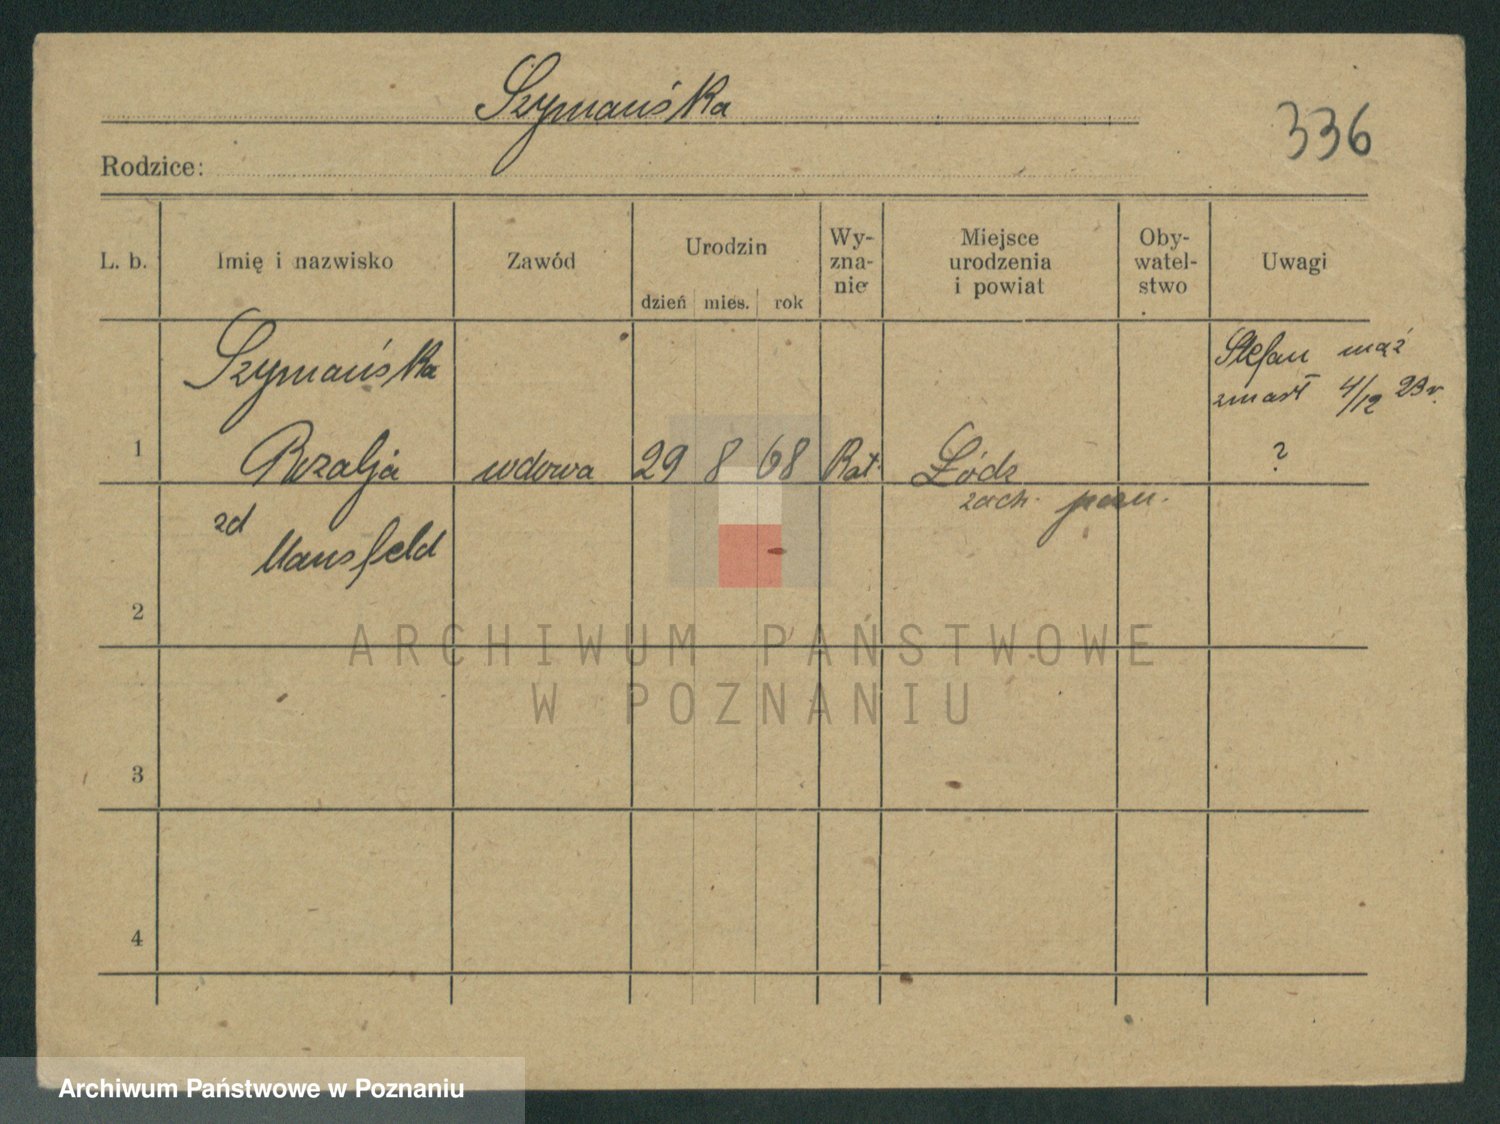 Szymańska
336
Rodzice:
L. b. Imię i nazwisko Zawód Urodzin dzień mies. rok Wy-zna-nie Miejsce urodzenia i powiat Oby-watel-stwo Uwagi
Szymańska
Stefan mąż
zmarł 4/12 23 r.
1 Rozalja wdowa 29 8 68 Kat. Łódź ?
zach. pozn.
zd
Mansfeld
2
3
4
ARCHIWUM PAŃSTWOWE
W POZNANIU
Archiwum Państwowe w Poznaniu